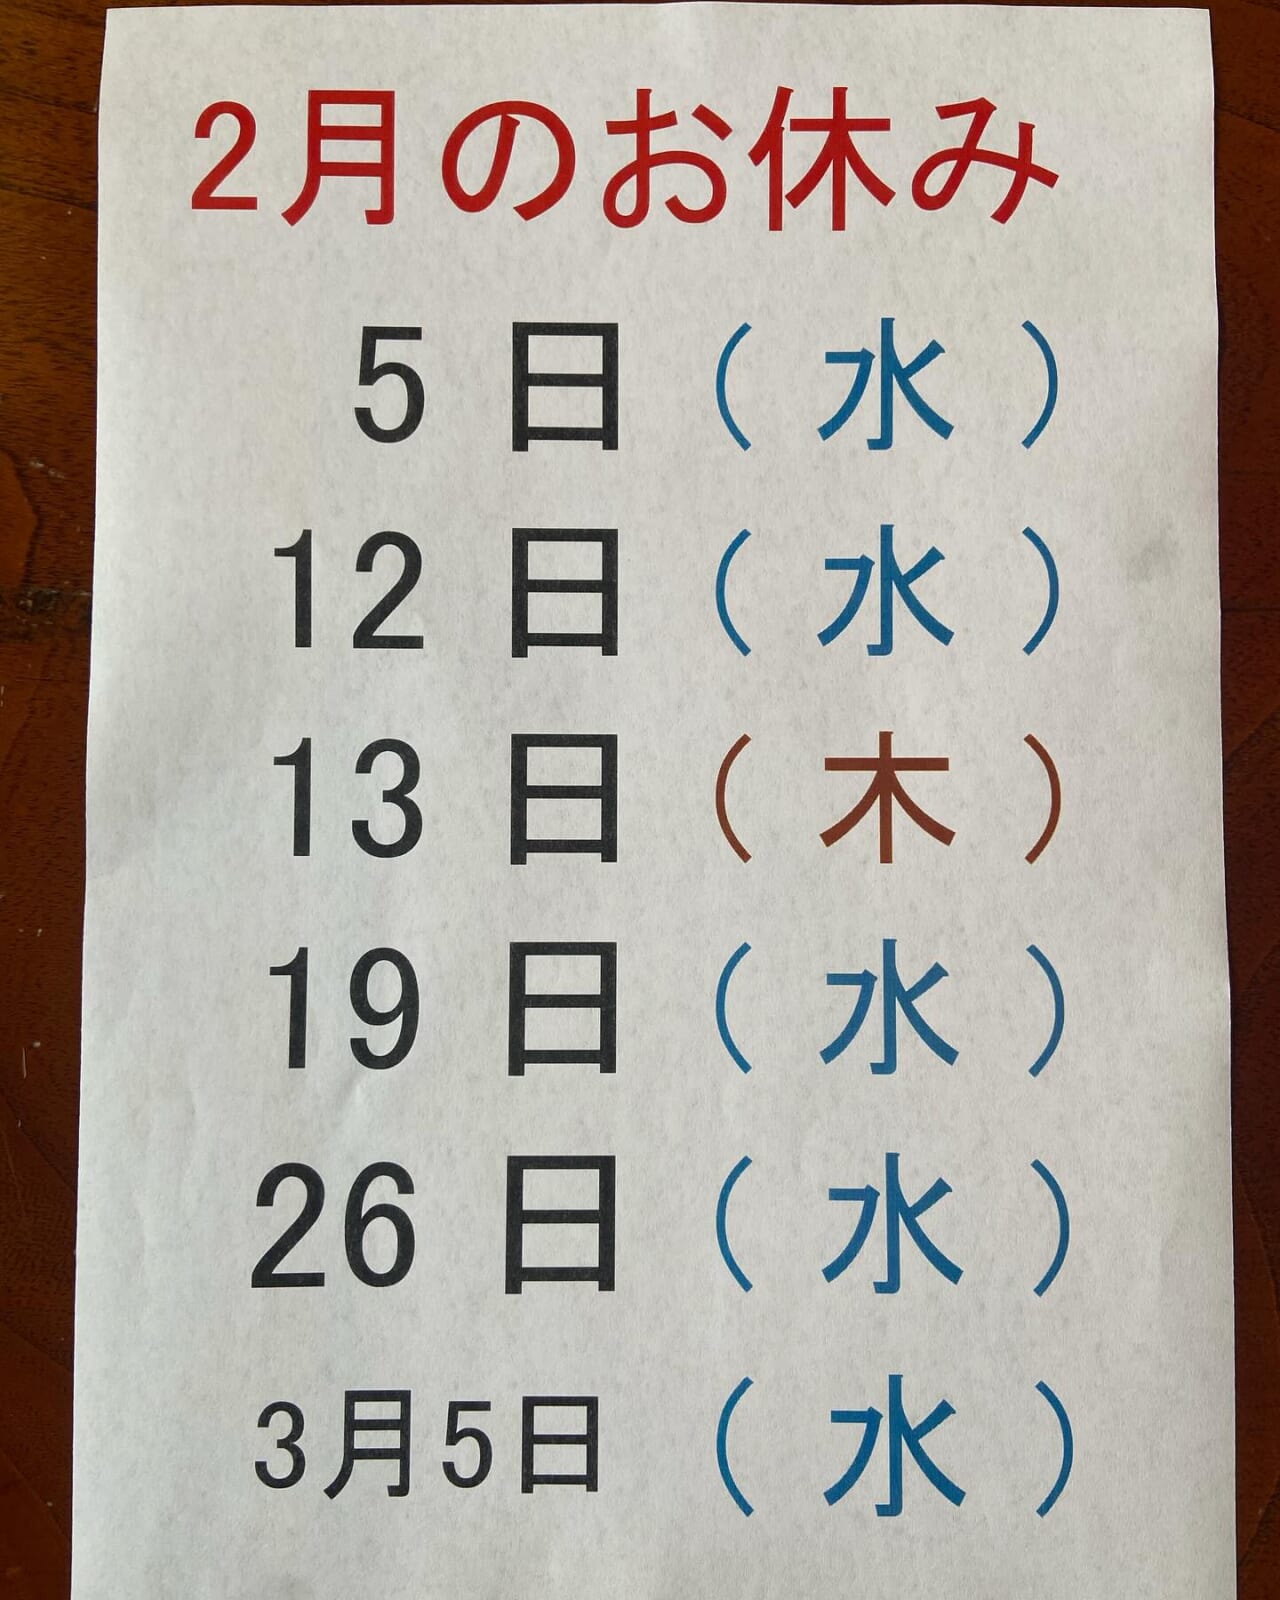 2月のお休み
5日(水)
12日(水)
13日(木)
19日(水)
26日(水)
3月5日(水)